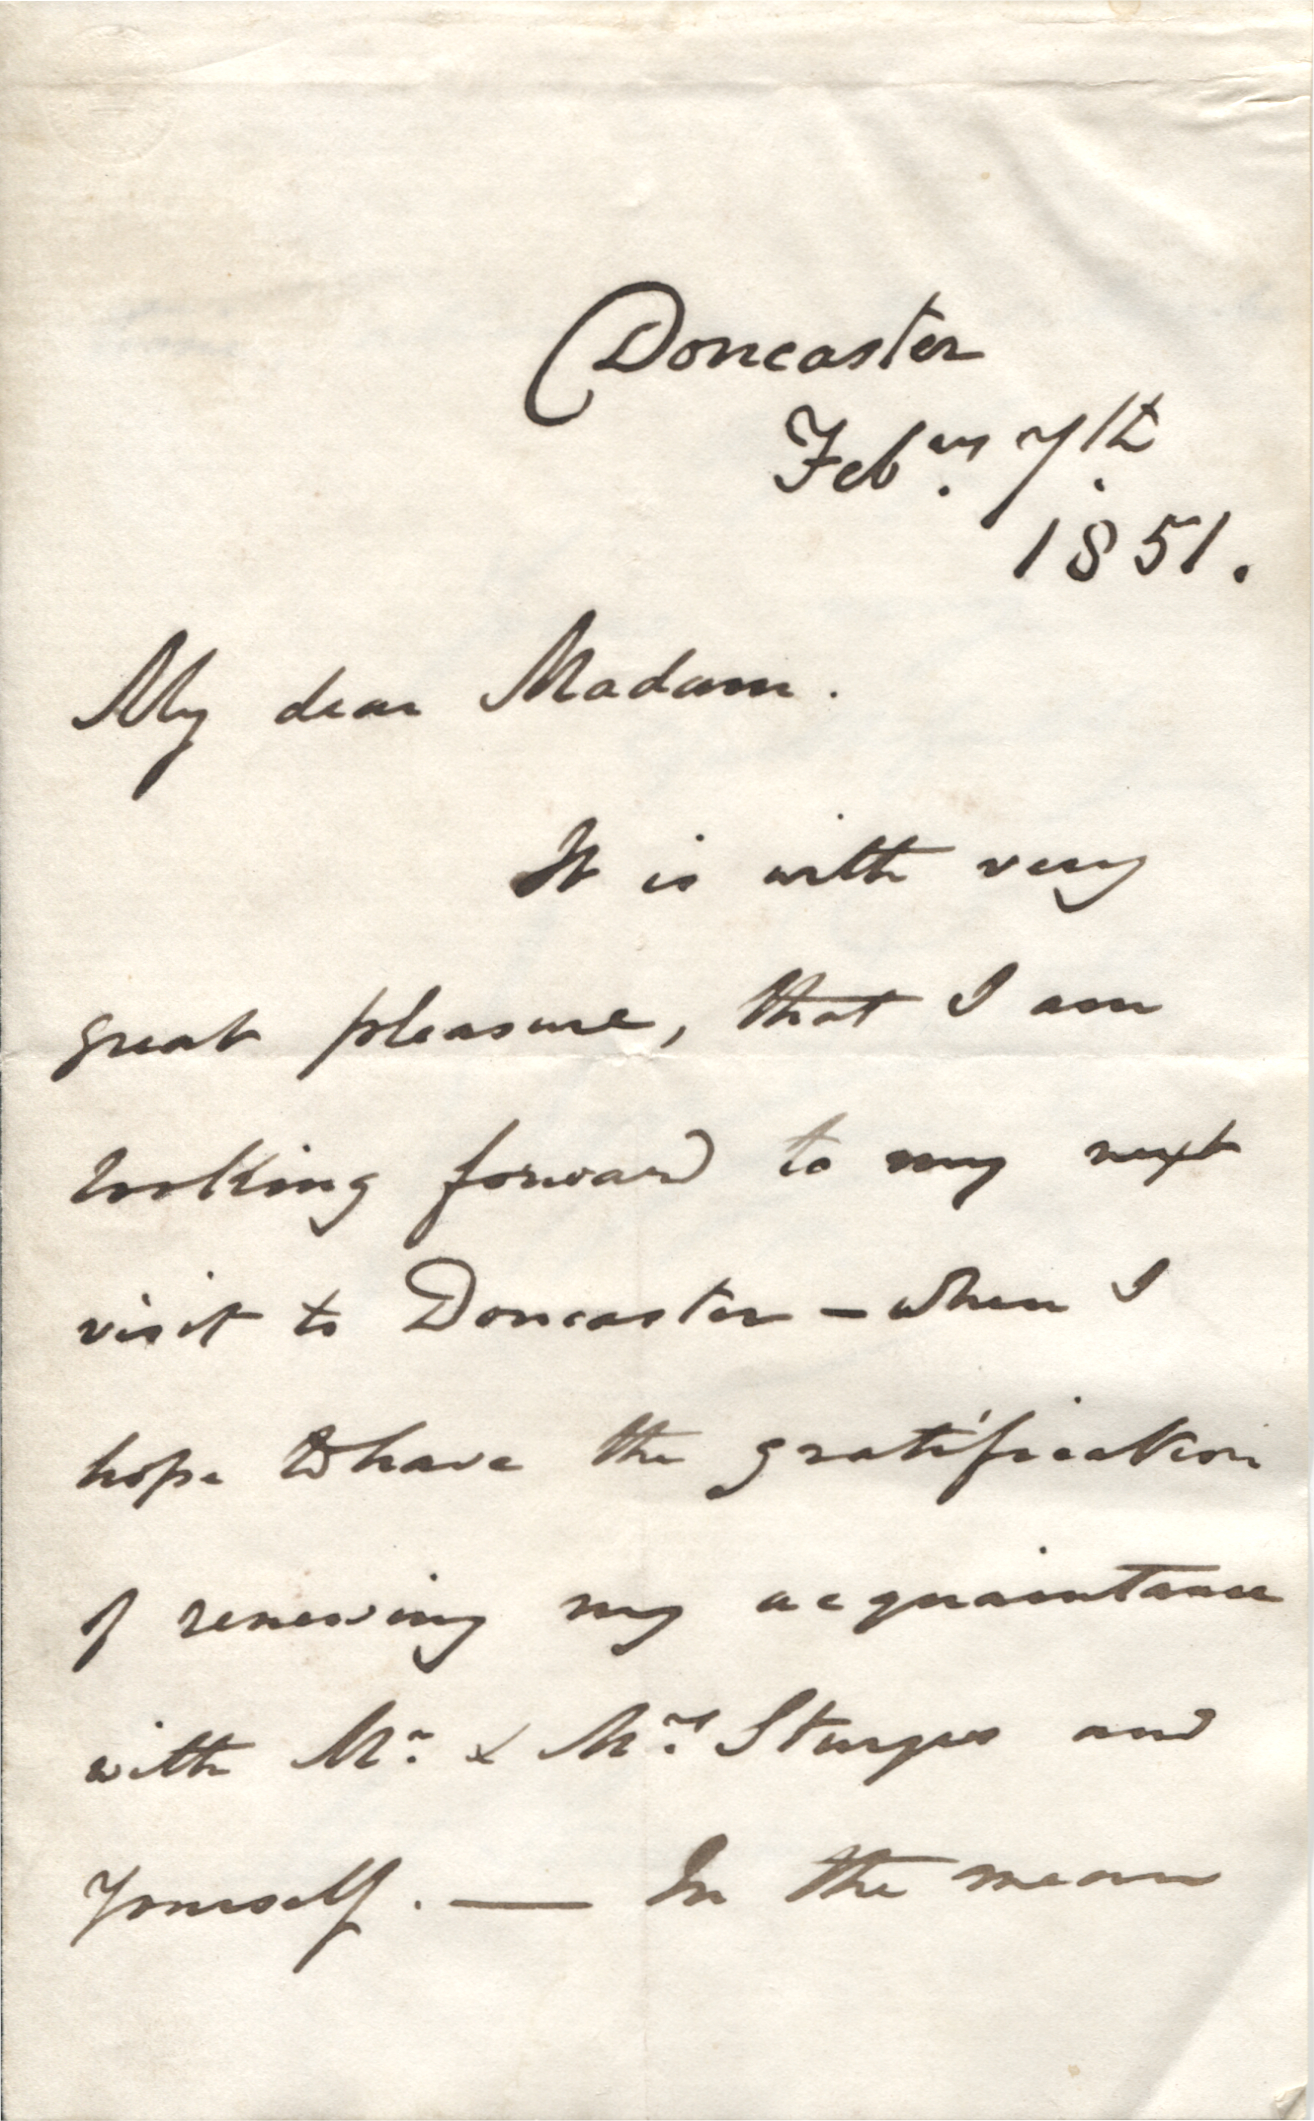 Doncaster
Feb.ry 7th.
1851.
My dear Madam.
It is with very
great pleasure, that I am
looking forward to my next
visit to Doncaster – when I
hope to have the gratification
of renewing my acquaintance
with Mr. & Mrs. Sturges and
Yourself. — In the mean